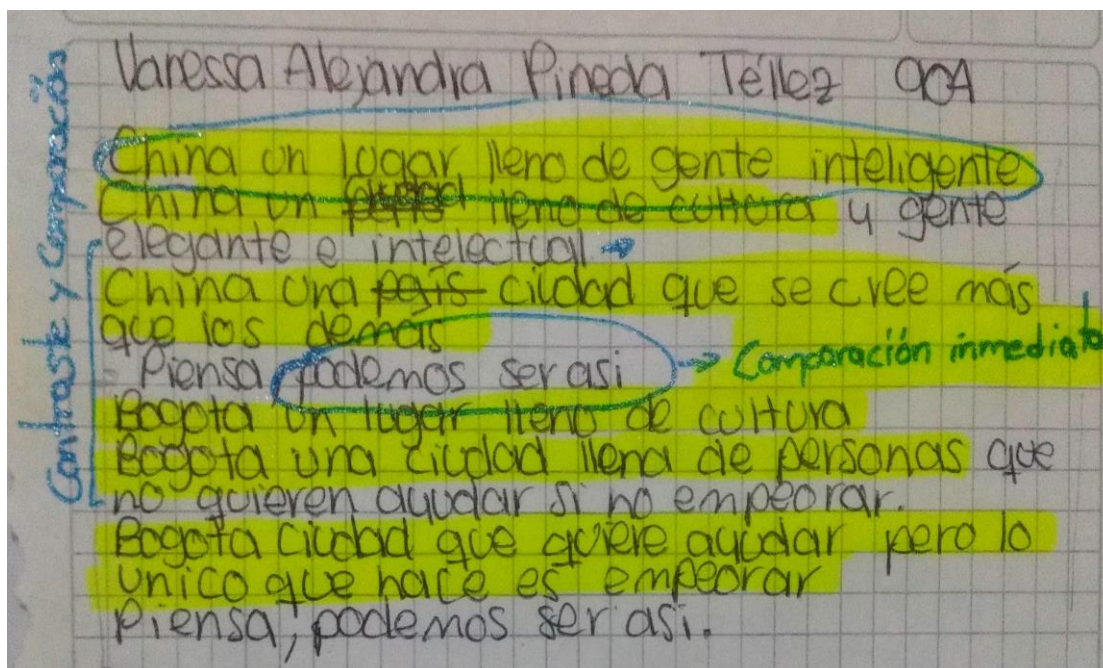 Vanessa Alejandra Pineda Téllez 904
China un lugar lleno de gente inteligente
China un lleno de cultura y gente
elegante e intelectual
China una país ciudad que se cree más
que los demás
Piensa podemos ser asi
Comparación inmediata
Bogota un lugar lleno de cultura
Bogota una ciudad llena de personas que
no quieren ayudar si no empeorar.
Bogota ciudad que quiere ayudar pero lo
unico que hace es empeorar
Piensa, podemos ser asi.
Contraste y Comparación